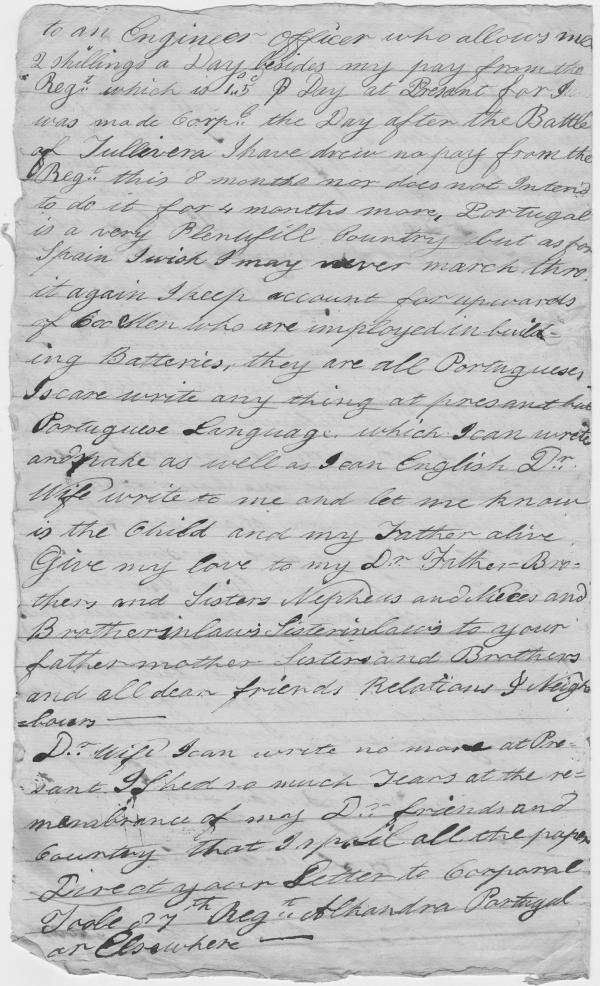 to an Engineer officer who allows me
2 shillings a Day besides my pay from the
Regt. which is 1s..5d ⅌ Day at Presant for I
was made Corpl. the Day after the Battle
of Tullivera I have drew no pay from the
Regt. this 8 months nor does not Intend
to do it for 4 months more, Portugal
is a very Plentifill Country but as for
Spain I wish I may never march thro.
it again I keep account for upwards
of 600 Men who are imployed in build=
ing Batteries, they are all Portuguese,
I scare write any thing at presant but
Portuguese Language. which I can write
and spake as well as I can English Dr.
Wife write to me and let me know
is the Child and my Father alive
Give my love to my Dr. Father- Bro=
thers and Sisters Nepheus and Nieces and
Brotherinlaws Sisterinlaws to your
father mother Sisters and Brothers
and all dear friends Relations & Neigh
=bours —
Dr. Wife I can write no more at Pre=
sant I Shed so much Tears at the re=
membrance of my Dr. friends and
Country that I spoil all the paper
Direct your Letter to Corporal
Toole 87th Regt. Alhandra Portugal
or Elsewhere —